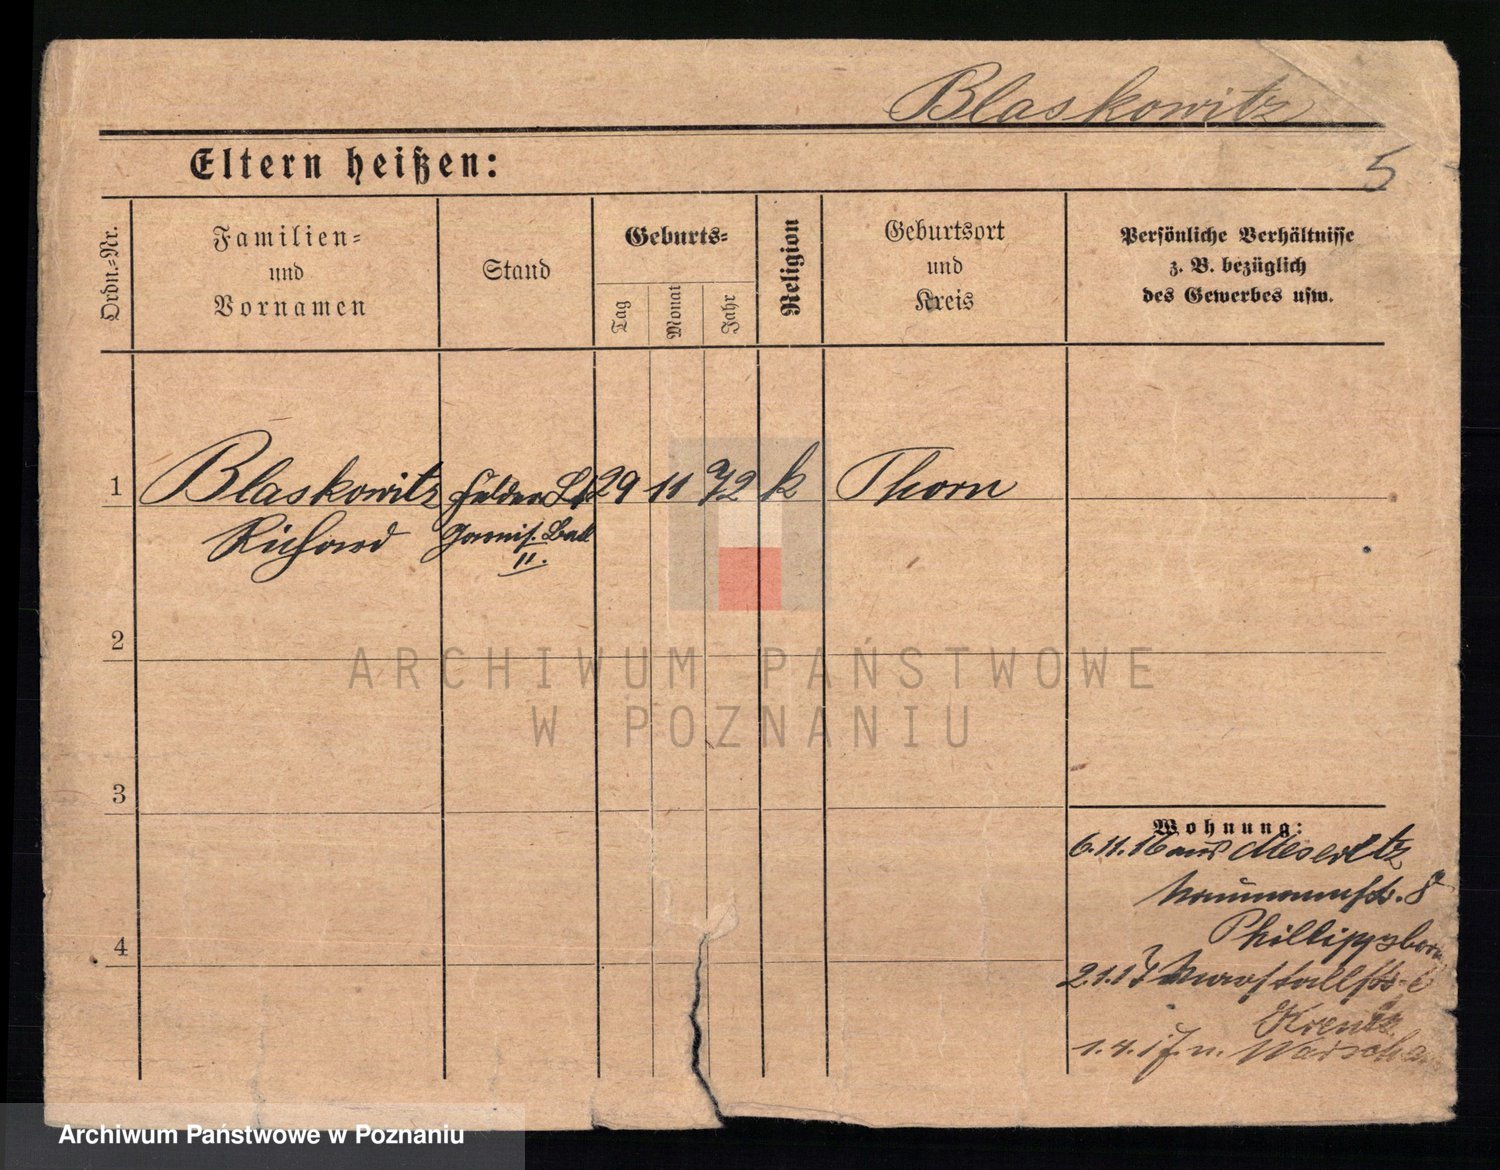 Blaskowitz
5
Eltern heißen:
Ordn.-Nr.
Familien-
und
Vornamen
Stand
Geburts-
Tag
Monat
Jahr
Religion
Geburtsort
und
Kreis
Persönliche Verhältnisse
z. B. bezüglich
des Gewerbes usw.
1
Blaskowitz
Richard
29 11 72 k Thorn
Garnis. Batl
II.
2
3
4
Wohnung:
6.11.16 aus Meseritz
Naumannstr. 8
Phillippsborn
2.1.17 Marstallstr. 6
1.4.17. n. Warschau
ARCHIWUM PAŃSTWOWE
W POZNANIU
Archiwum Państwowe w Poznaniu